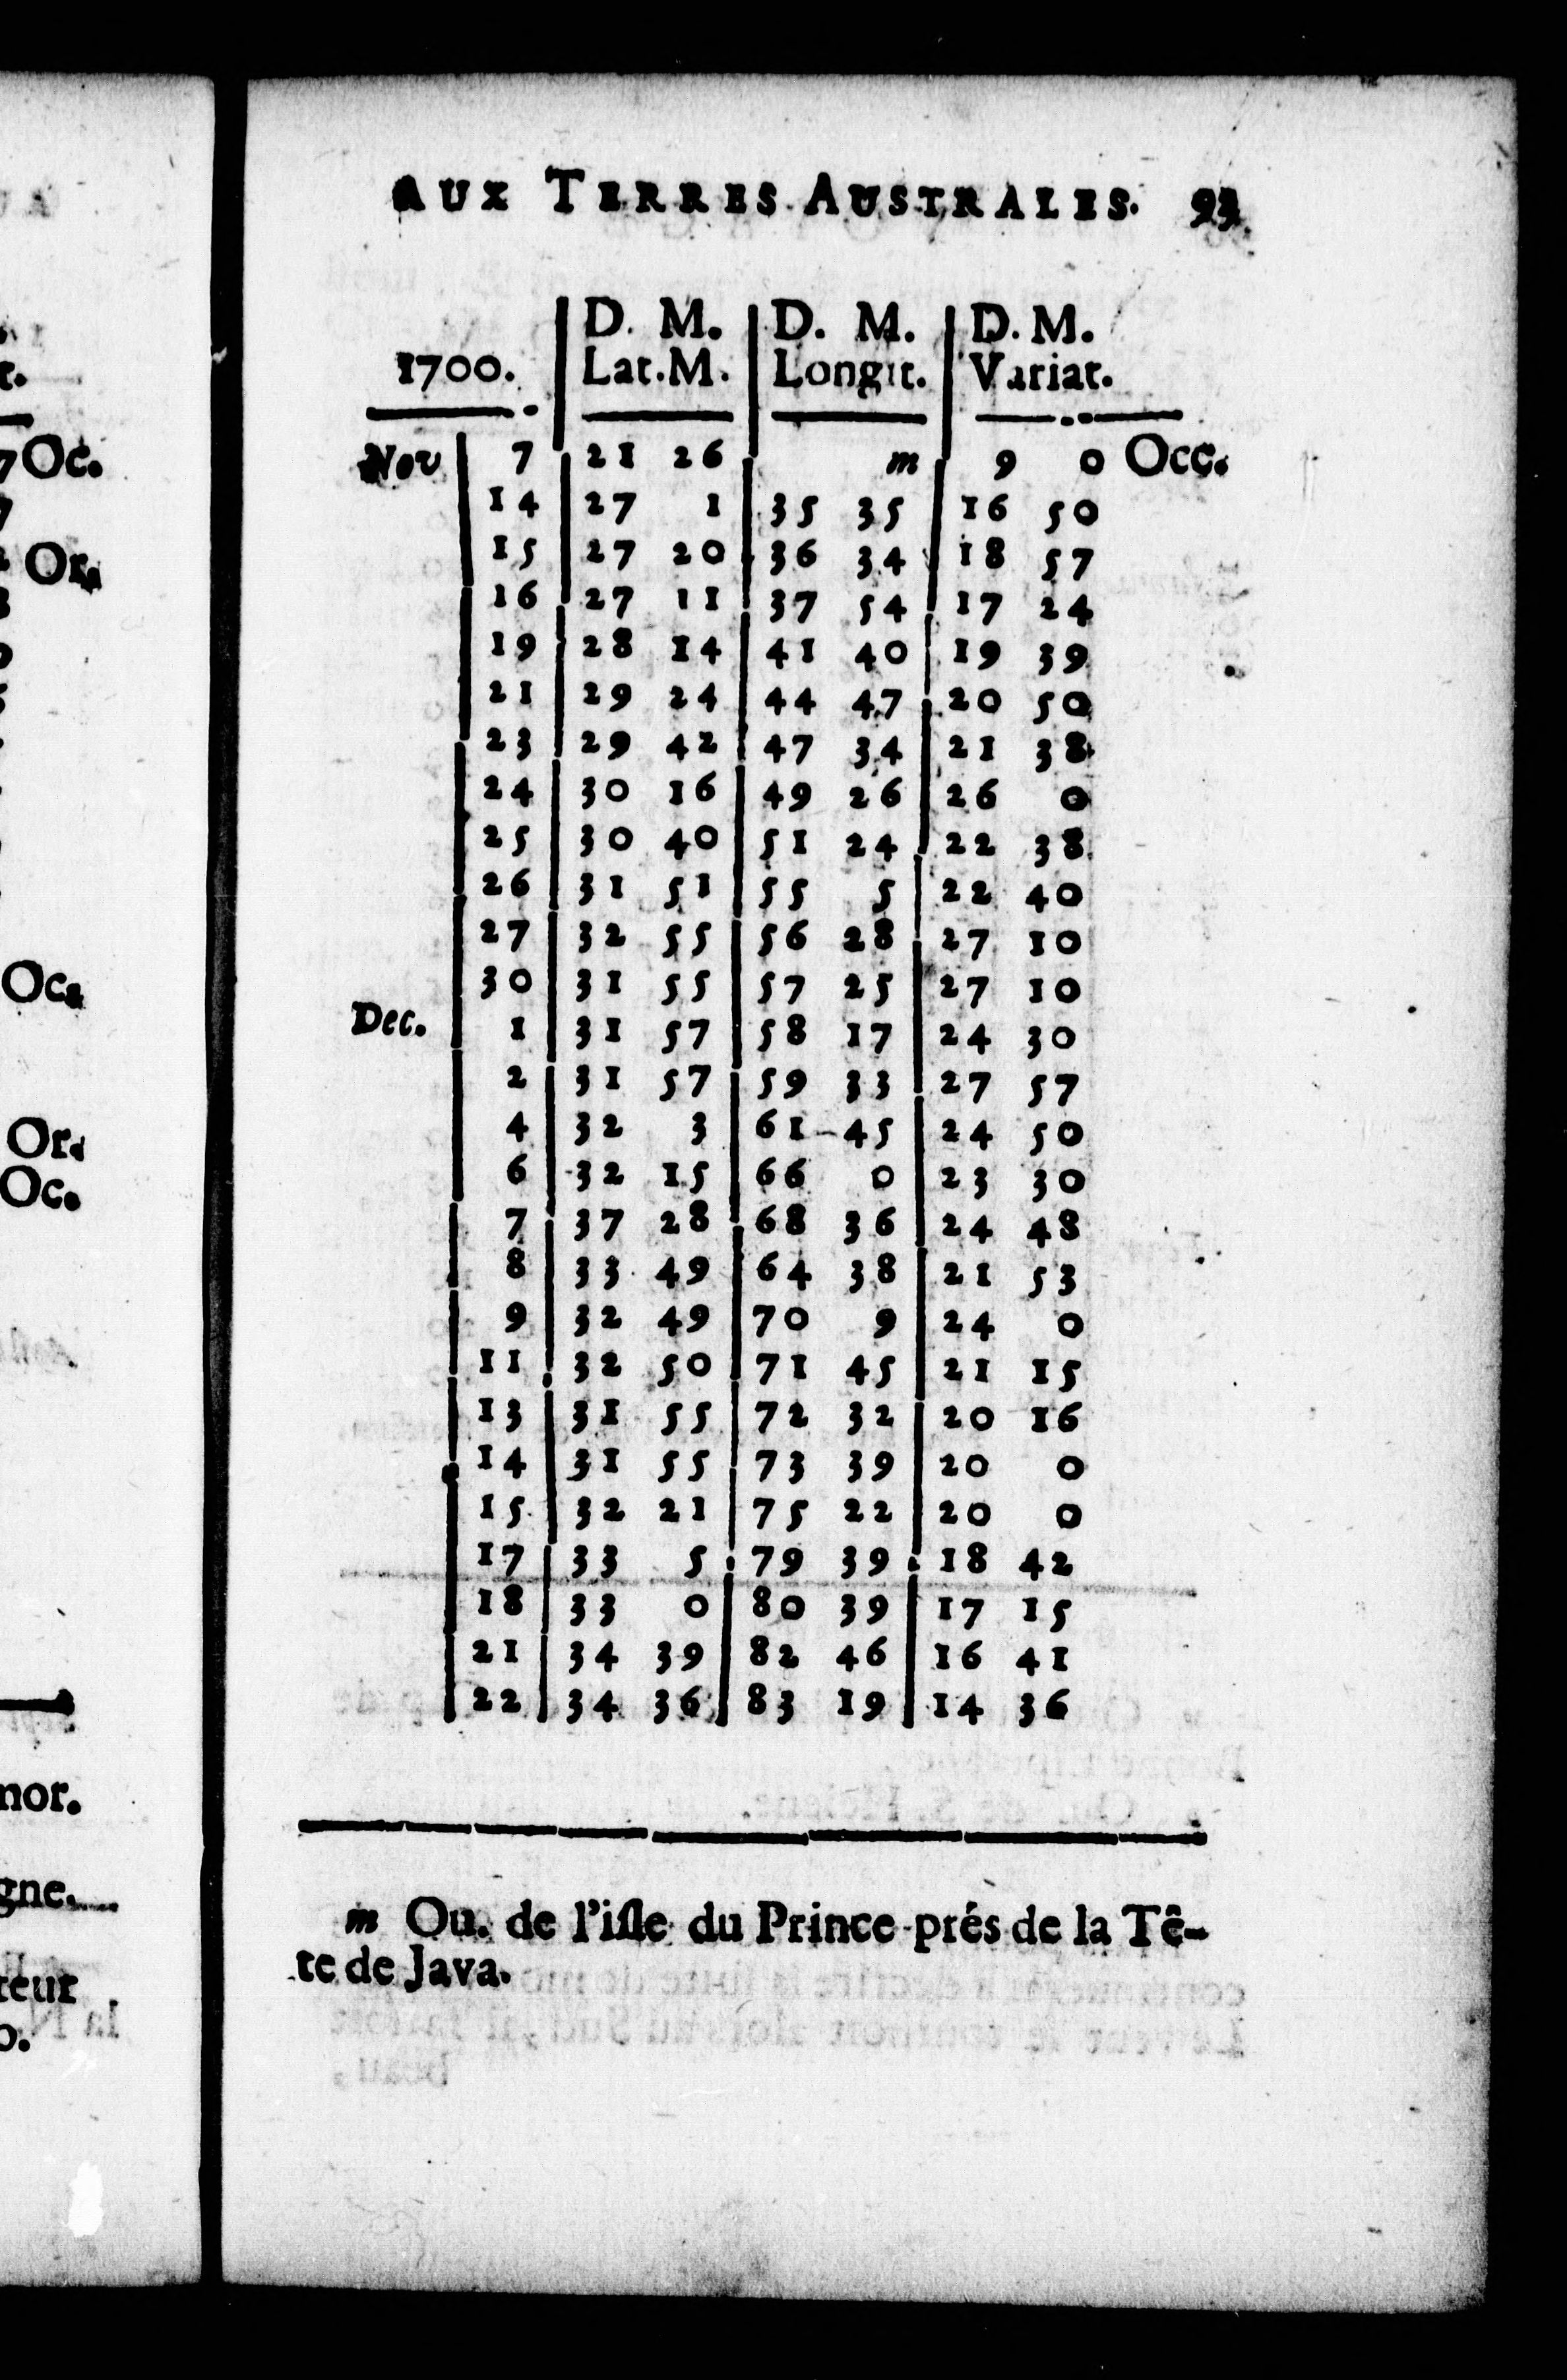 AUX TERRES AUSTRALES. 93
D. M. D. M. D. M.
1700. Lat.M. Longit. Variat.
Nov 7 21 26 m 9 0 Occ.
14 27 1 35 35 16 50
15 27 20 36 34 18 57
16 27 11 37 54 17 24
19 28 14 41 40 19 39
21 29 24 44 47 20 50
23 29 42 47 34 21 38
24 30 16 49 26 26 0
25 30 40 51 24 22 38
26 31 51 55 5 22 40
27 32 55 56 28 27 10
30 31 55 57 25 27 10
Dec. 1 31 57 58 17 24 30
2 31 57 59 33 27 57
4 32 3 61 45 24 50
6 32 15 66 0 23 30
7 37 28 68 36 24 48
8 33 49 64 38 21 53
9 32 49 70 9 24 0
11 32 50 71 45 21 15
13 31 55 72 32 20 16
14 31 55 73 39 20 0
15 32 21 75 22 20 0
17 33 5 79 39 18 42
18 33 0 80 39 17 15
21 34 39 82 46 16 41
22 34 36 83 19 14 36
m Ou. de l'iſle du Prince prés de la Tê-
te de Java.